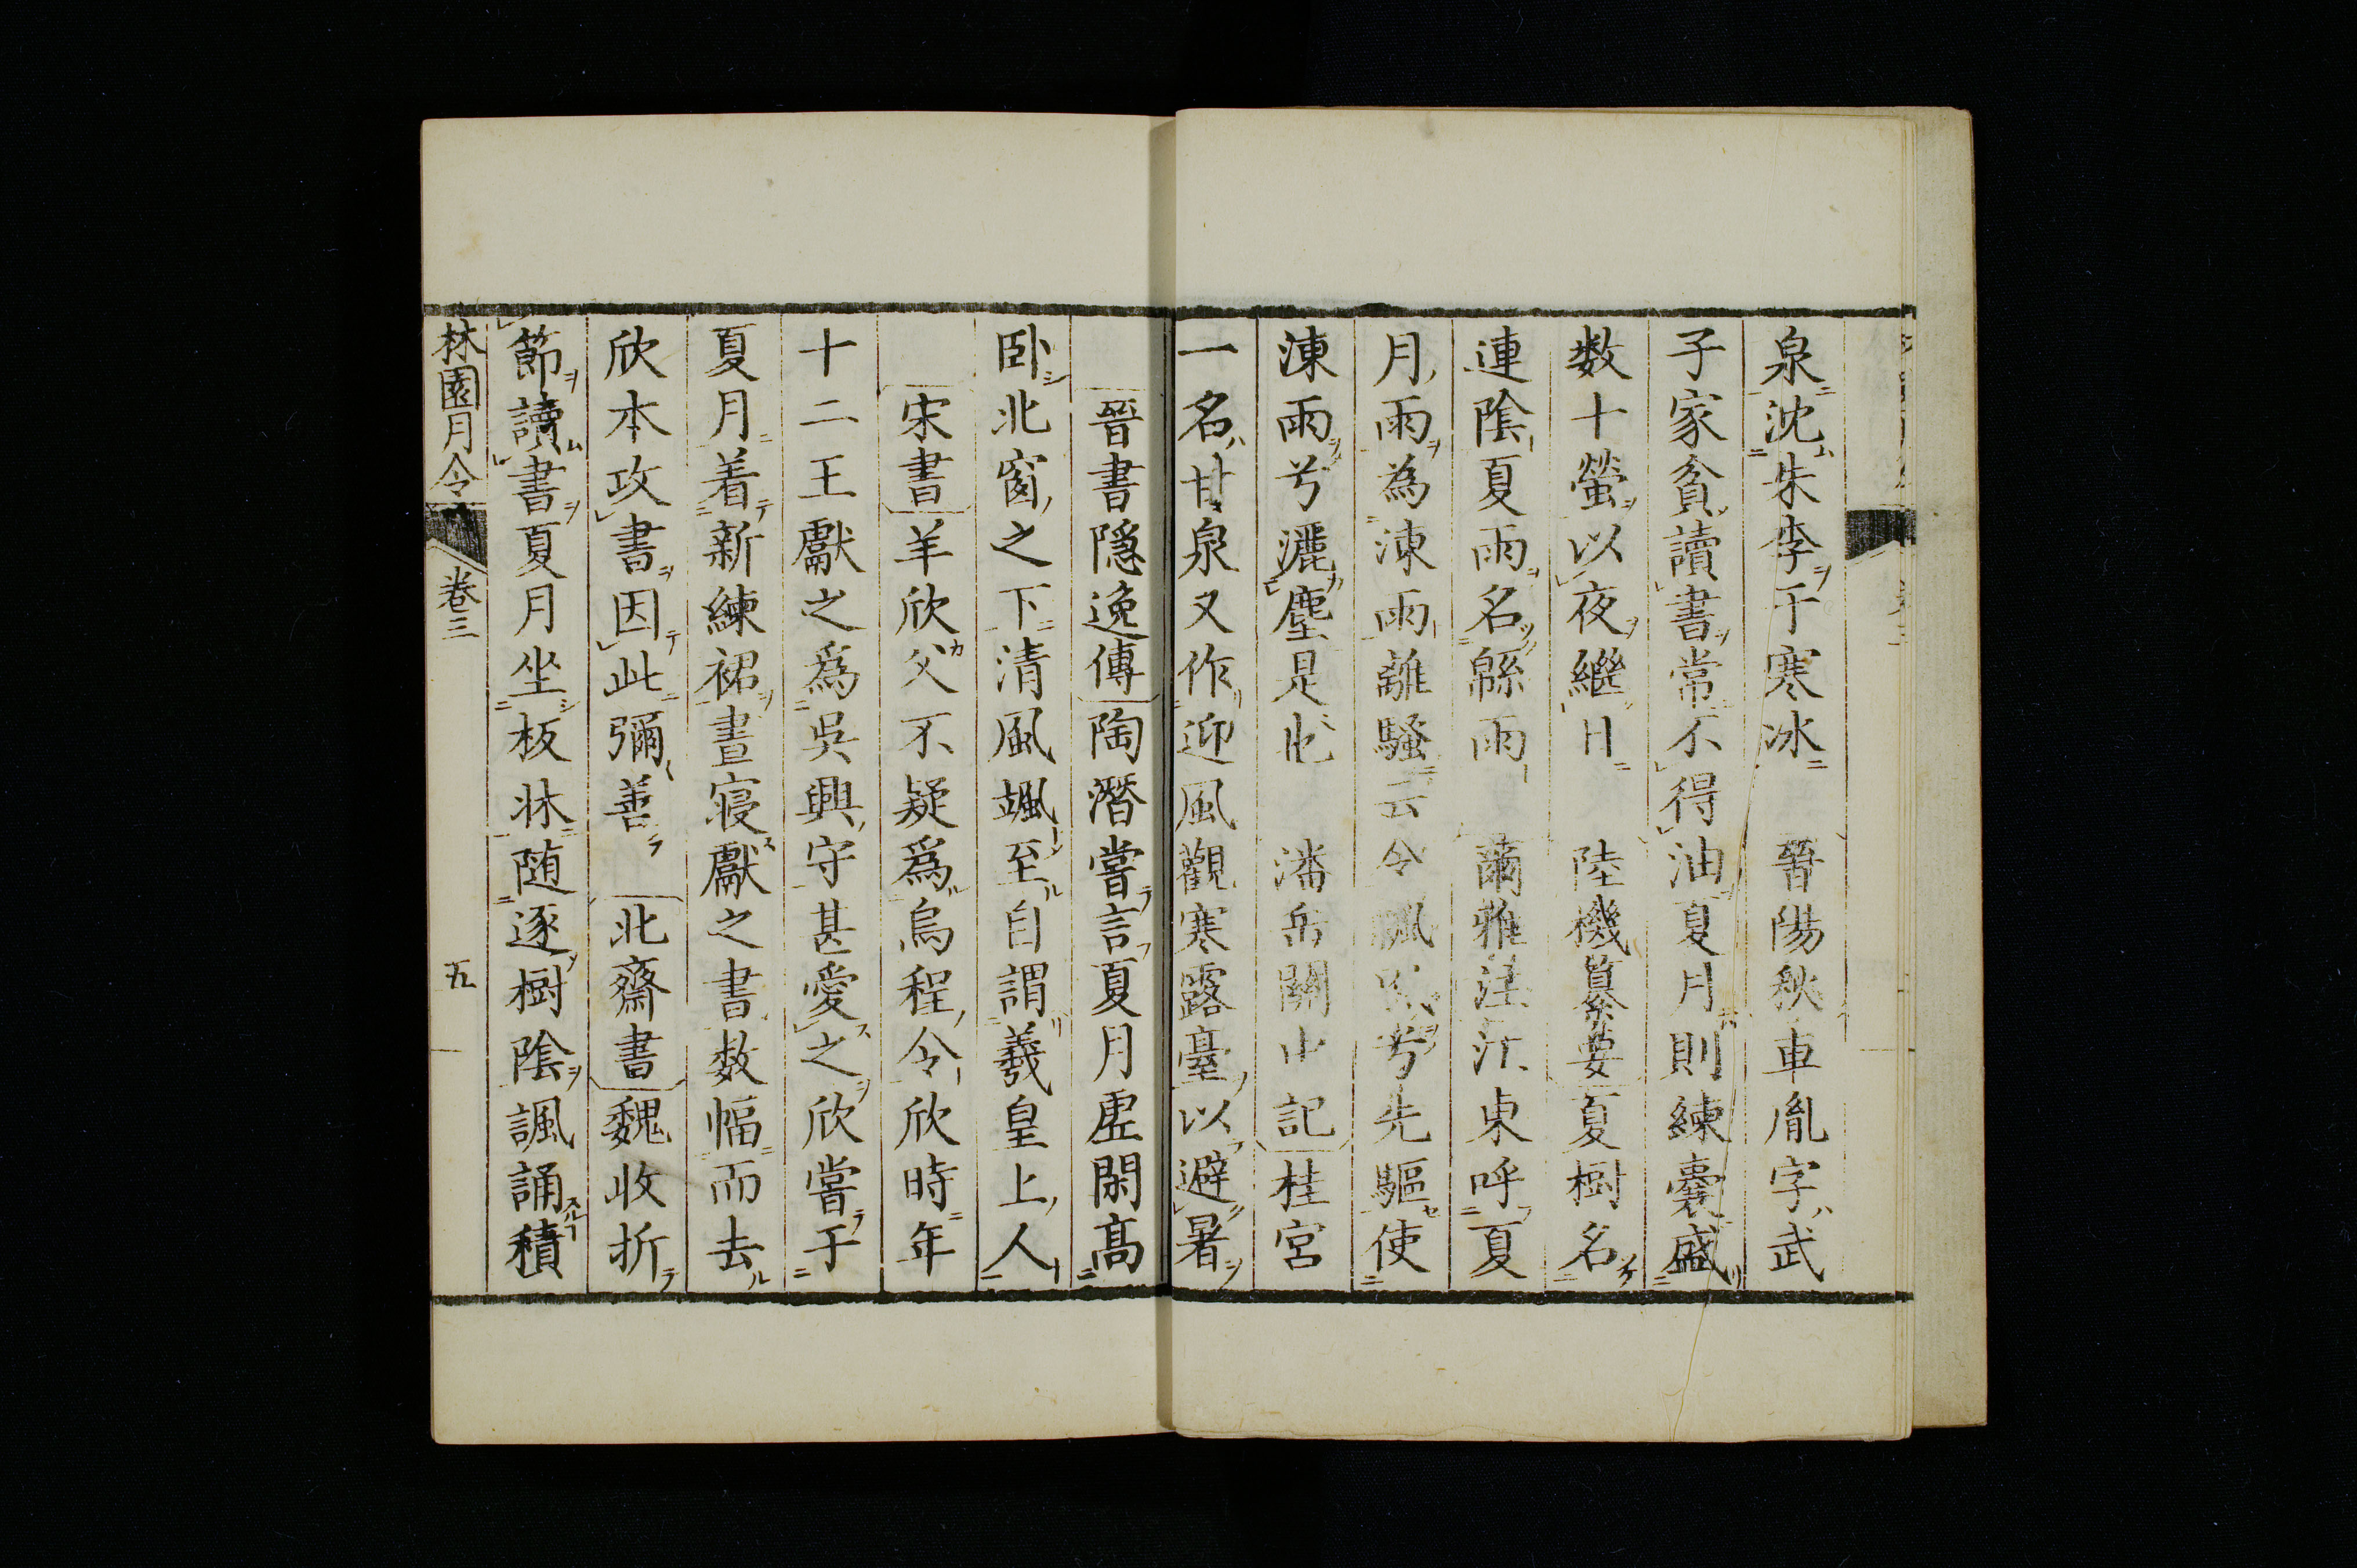 泉沈朱李于寒冰　晉陽秋車胤字武
子家貧讀書常不得油夏月則練囊盛
数十螢以夜繼日　陸機纂要夏樹名
連陰夏雨名緜雨　爾雅注江東呼夏
月雨為涷雨離騷云令飄風兮先驅使
涷雨兮灑塵是也　潘岳關中記桂宮
一名甘泉又作迎風觀寒露臺以避暑
晉書隱逸傳陶潛嘗言夏月虛閑高
卧北窗之下清風颯至自謂羲皇上人
宋書羊欣父不疑爲烏程令欣時年
十二王獻之爲吳興守甚愛之欣嘗于
夏月着新練裙晝寢獻之書数幅而去
欣本攻書因此彌善　北齋書魏收折
節讀書夏月坐板牀随逐樹陰諷誦積
林園月令　卷三　五